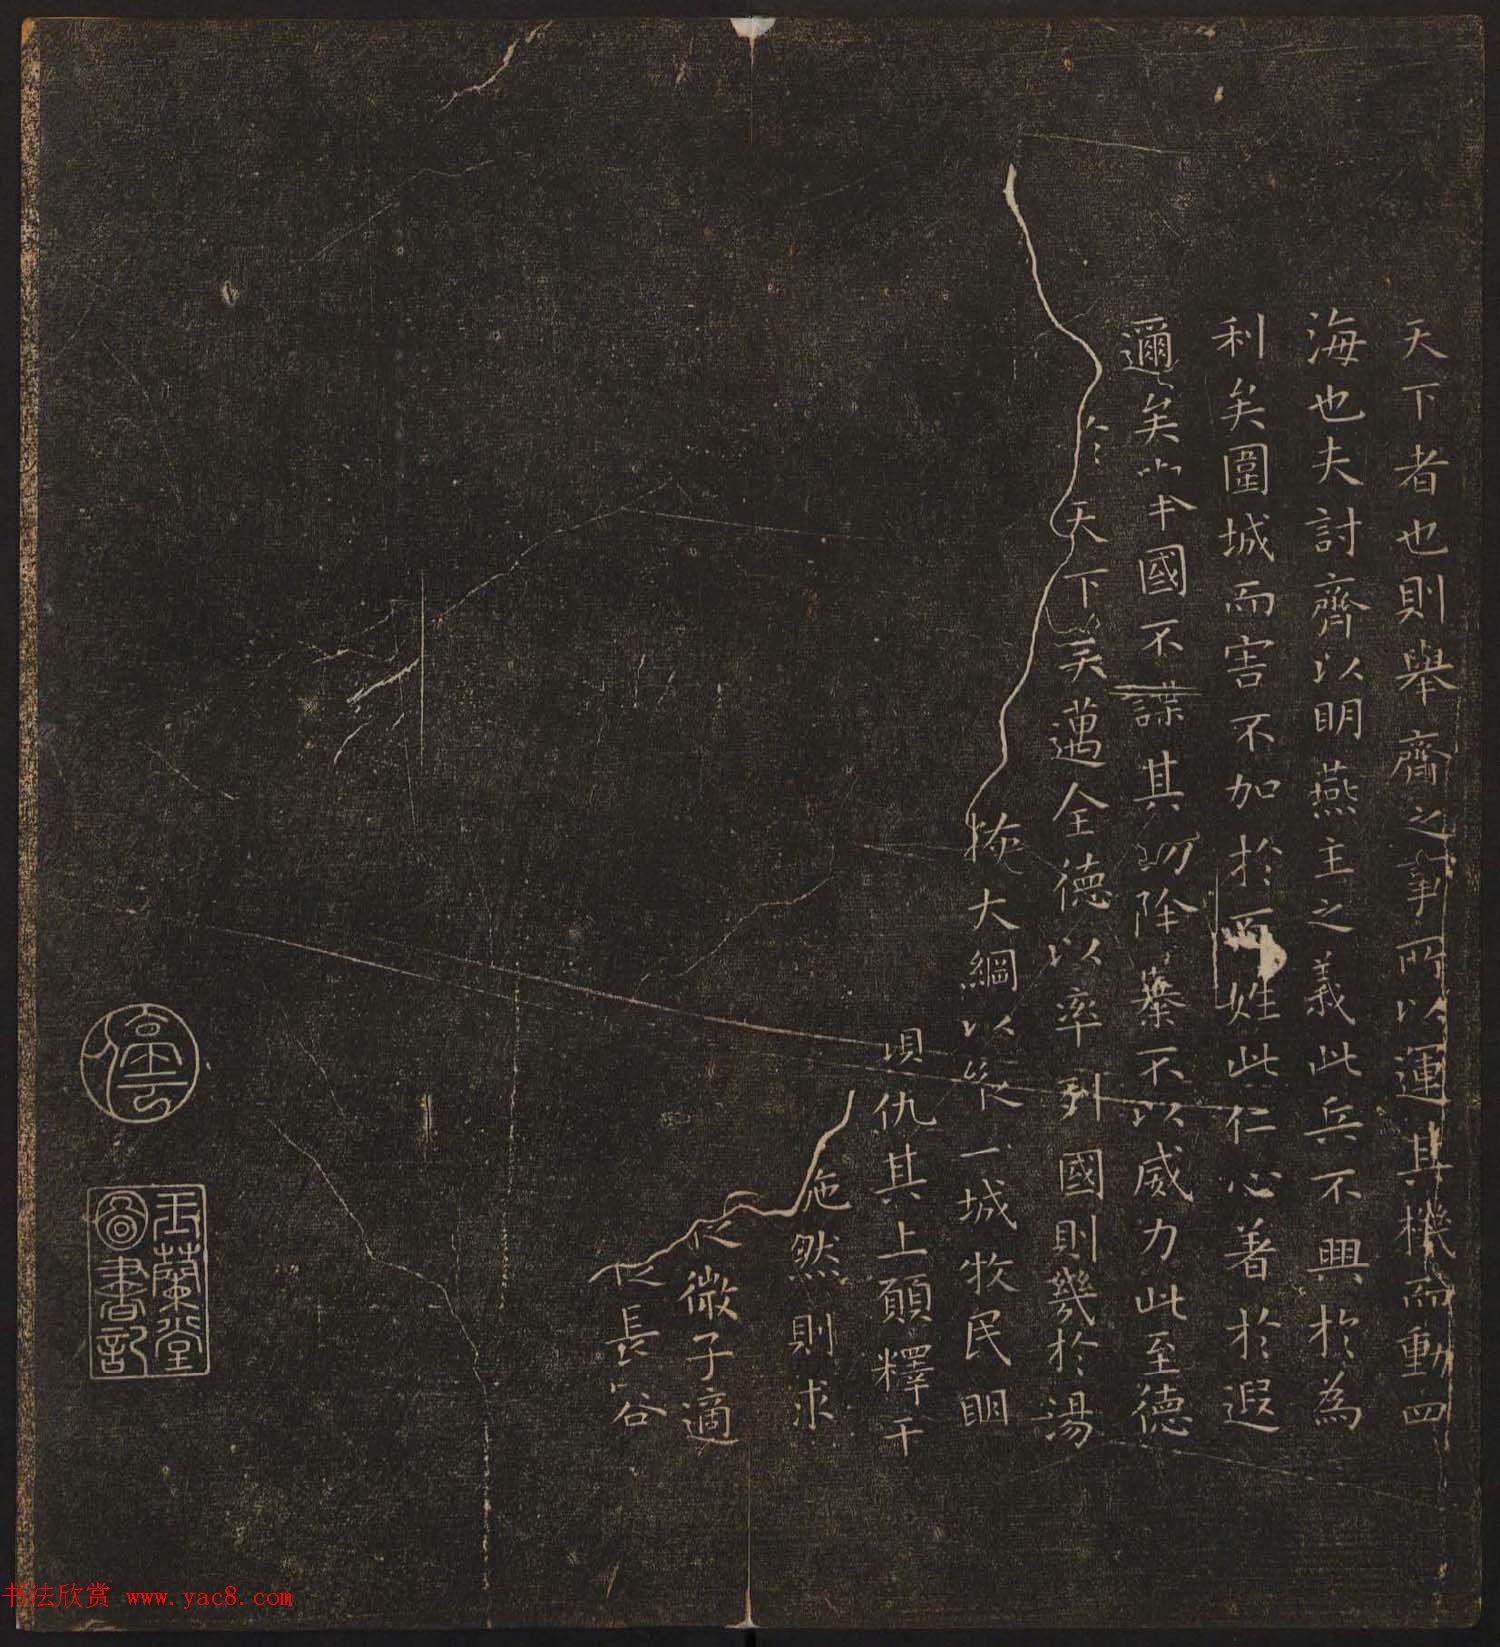 天下者也則舉齊之事所以運其機而動四
海也夫討齊以明燕主之義此兵不興於為
利矣圍城而害不加於百姓此仁心著於遐
邇矣國不謀其功除暴不以威力此至德
於天下矣邁全德以率列國則幾於湯
大綱以城牧民明
仇其上願釋干
施然則求
微子適
長容
停雲
玉蘭堂
圖書記
书法欣赏 www.yac8.com